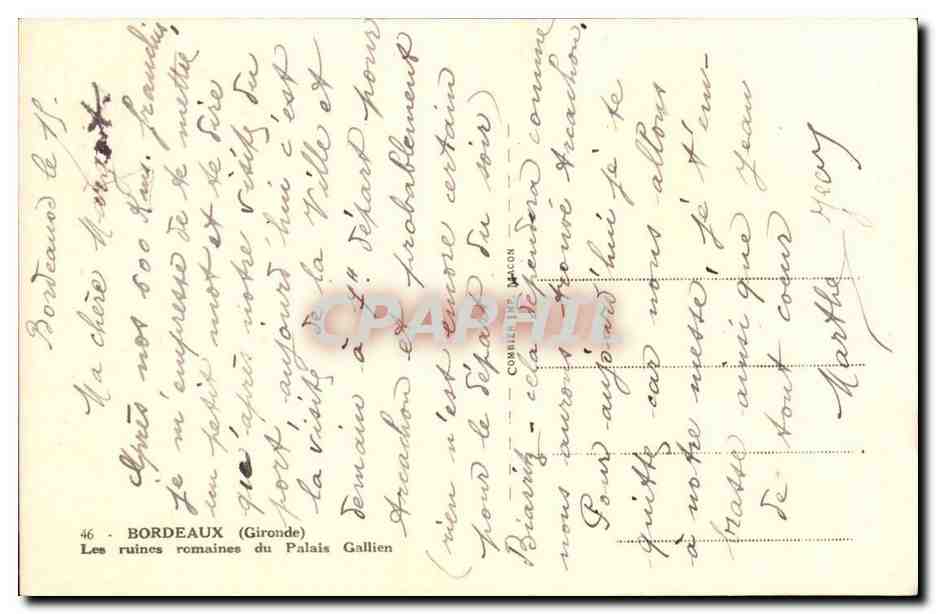 Bordeaux le 15.
Ma chère
Après nos 500 Km. franchis,
je m'empresse de te mettre
un petit mot et te dire
qu'après notre visite du
port aujourd'hui c'est
la visite de la ville et
demain à 4h départ pour
Arcachon et probablement
(rien n'est encore certain
pour le départ du soir)
Biarritz - cela dépendra comme
nous aurons trouvé Arcachon.
Pour aujourd'hui je te
quitte car nous allons
à notre messe, je t'em-
brasse ainsi que Jean
de tout coeur
Marthe
46 - BORDEAUX (Gironde)
Les ruines romaines du Palais Gallien
COMBIER IMP. MACON
CPARAMA.COM